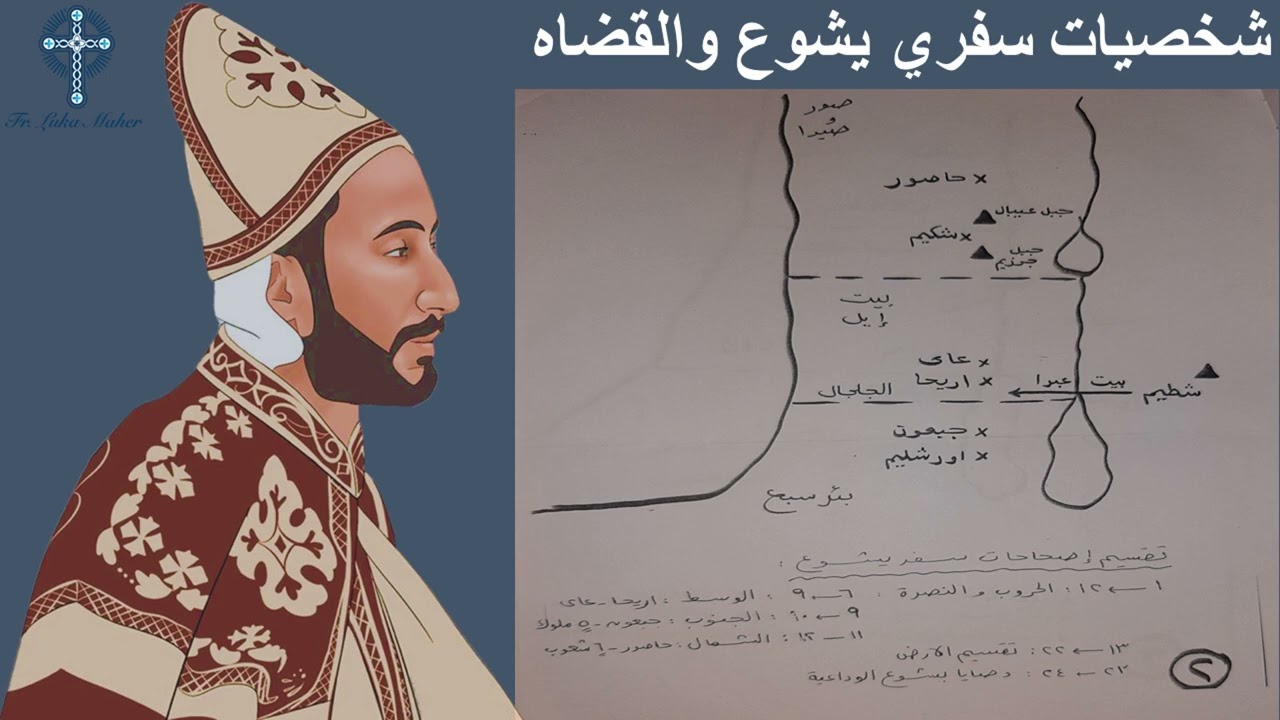 شخصيات سفري يشوع والقضاه
Fr. Luka Maher
صور
و
صيدا
x حاصور
جبل عيبال
x شكيم
جبل
جرزيم
بيت
إيل
x عاى
x اريحا
الجلجال
بيت عبرا
شطيم
x جبعون
x اورشليم
بئر سبع
تقسيم إصحاحات سفر يشوع :
١ ← ١٢ : الحروب والنصرة : ٦ ← ٩ : الوسط : اريحا - عاى
٩ ← ١٠ : الجنوب : جبعون - ٥ ملوك
١١ - ١٢ : الشمال : حاصور - ٦ شعوب
١٣ ← ٢٢ : تقسيم الأرض
٢٣ - ٢٤ : وصايا يشوع الوداعية
٢